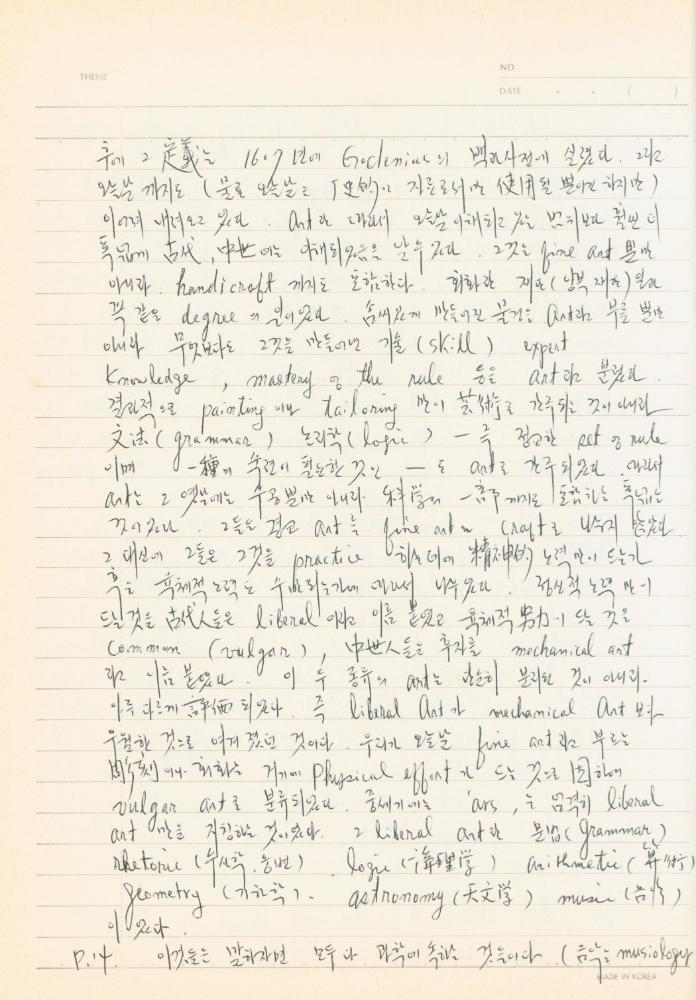 THEME
NO
DATE . . ( )
후에 그 定義는 1607년에 Goclenius의 백과사전에 실렸다. 그리고
오늘날 까지도 (물론 오늘날은 史的인 자료로서만 使用될 뿐이긴 하지만)
이어져 내려오고 있다. Art란 따라서 오늘날 이해되고 있는 범위보다 훨씬 더
폭넓게 古代, 中世에는 이해되었음을 알 수 있다. 그것은 fine art 뿐만
아니라 handicraft 까지도 포함한다. 회화란 재단(남북재단)일과
꼭 같은 degree의 일이었다. 솜씨있게 만들어진 물건을 Art라고 부를 뿐만
아니라 무엇보다도 그것을 만들어낸 기술 (skill) expert
Knowledge, mastery of the rule 등을 art라고 불렀다.
결과적으로 painting이나 tailoring 만이 芸術로 간주되는 것이 아니라
文法(grammar) 논리학(logic) — 즉 정교한 set of rule
이며 一種의 숙련이 필요한 것인 — 도 art로 간주되었다. 따라서
art는 그 옛날에는 수공뿐만 아니라 科学의 一部까지도 포함하는 폭넓은
것이었다. 그들은 결코 art를 fine art나 craft로 나누지 않았다.
그 대신에 그들은 그것을 practice 하는데에 精神的 노력만이 드는가
혹은 육체적 노력도 수반되는가에 따라서 나누었다. 정신적 노력만이
드는 것을 古代人들은 liberal이라고 이름 붙였고 육체적 努力이 드는 것을
common (vulgar), 中世人들은 후자를 mechanical art
라고 이름 붙였다. 이 두 종류의 art는 단순히 분리된 것이 아니라
아주 다르게 評価되었다. 즉 liberal Art가 mechanical Art 보다
우월한 것으로 여겨졌던 것이다. 우리가 오늘날 fine art라고 부르는
彫刻이나 회화는 거기에 physical effort가 드는 것으로 因하여
vulgar art로 분류되었다. 중세기에는 'ars,는 엄격히 liberal
art만을 지칭하는 것이었다. 그 liberal art란 문법(Grammar)
rhetoric (수사학.웅변) . logic (論理学) arithmetic (算術)
geometry (기하학). astronomy (天文学) music (음악)
이 있다.
P.14. 이것들은 말하자면 모두 다 과학에 속하는 것들이다. (음악은 musiology
MADE IN KOREA